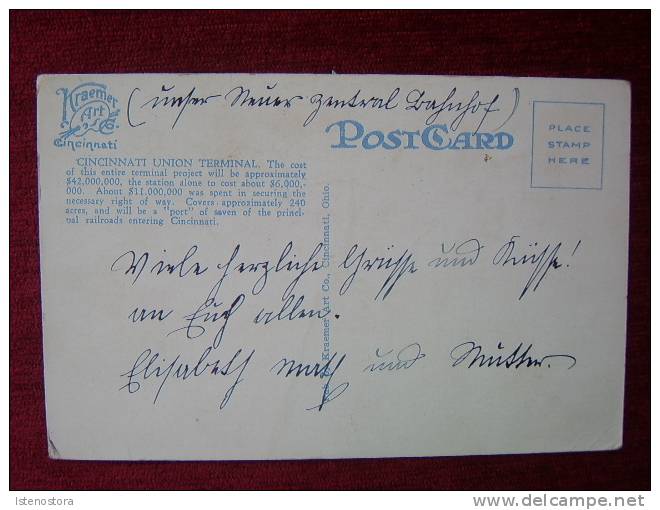 Kraemer
Art
Co
Cincinnati
(unser Neuer Zentral Bahnhof)
POST CARD
PLACE
STAMP
HERE
CINCINNATI UNION TERMINAL. The cost
of this entire terminal project will be approximately
$42,000,000, the station alone to cost about $6,000,-
000. About $11,000,000 was spent in securing the
necessary right of way. Covers approximately 240
acres, and will be a "port" of seven of the princi-
pal railroads entering Cincinnati.
Viele herzliche Grüsse und Küsse!
an Euch allen.
Elisabeth und Mutter.
Kraemer Art Co., Cincinnati, Ohio.
Istenostora
delcampe.net